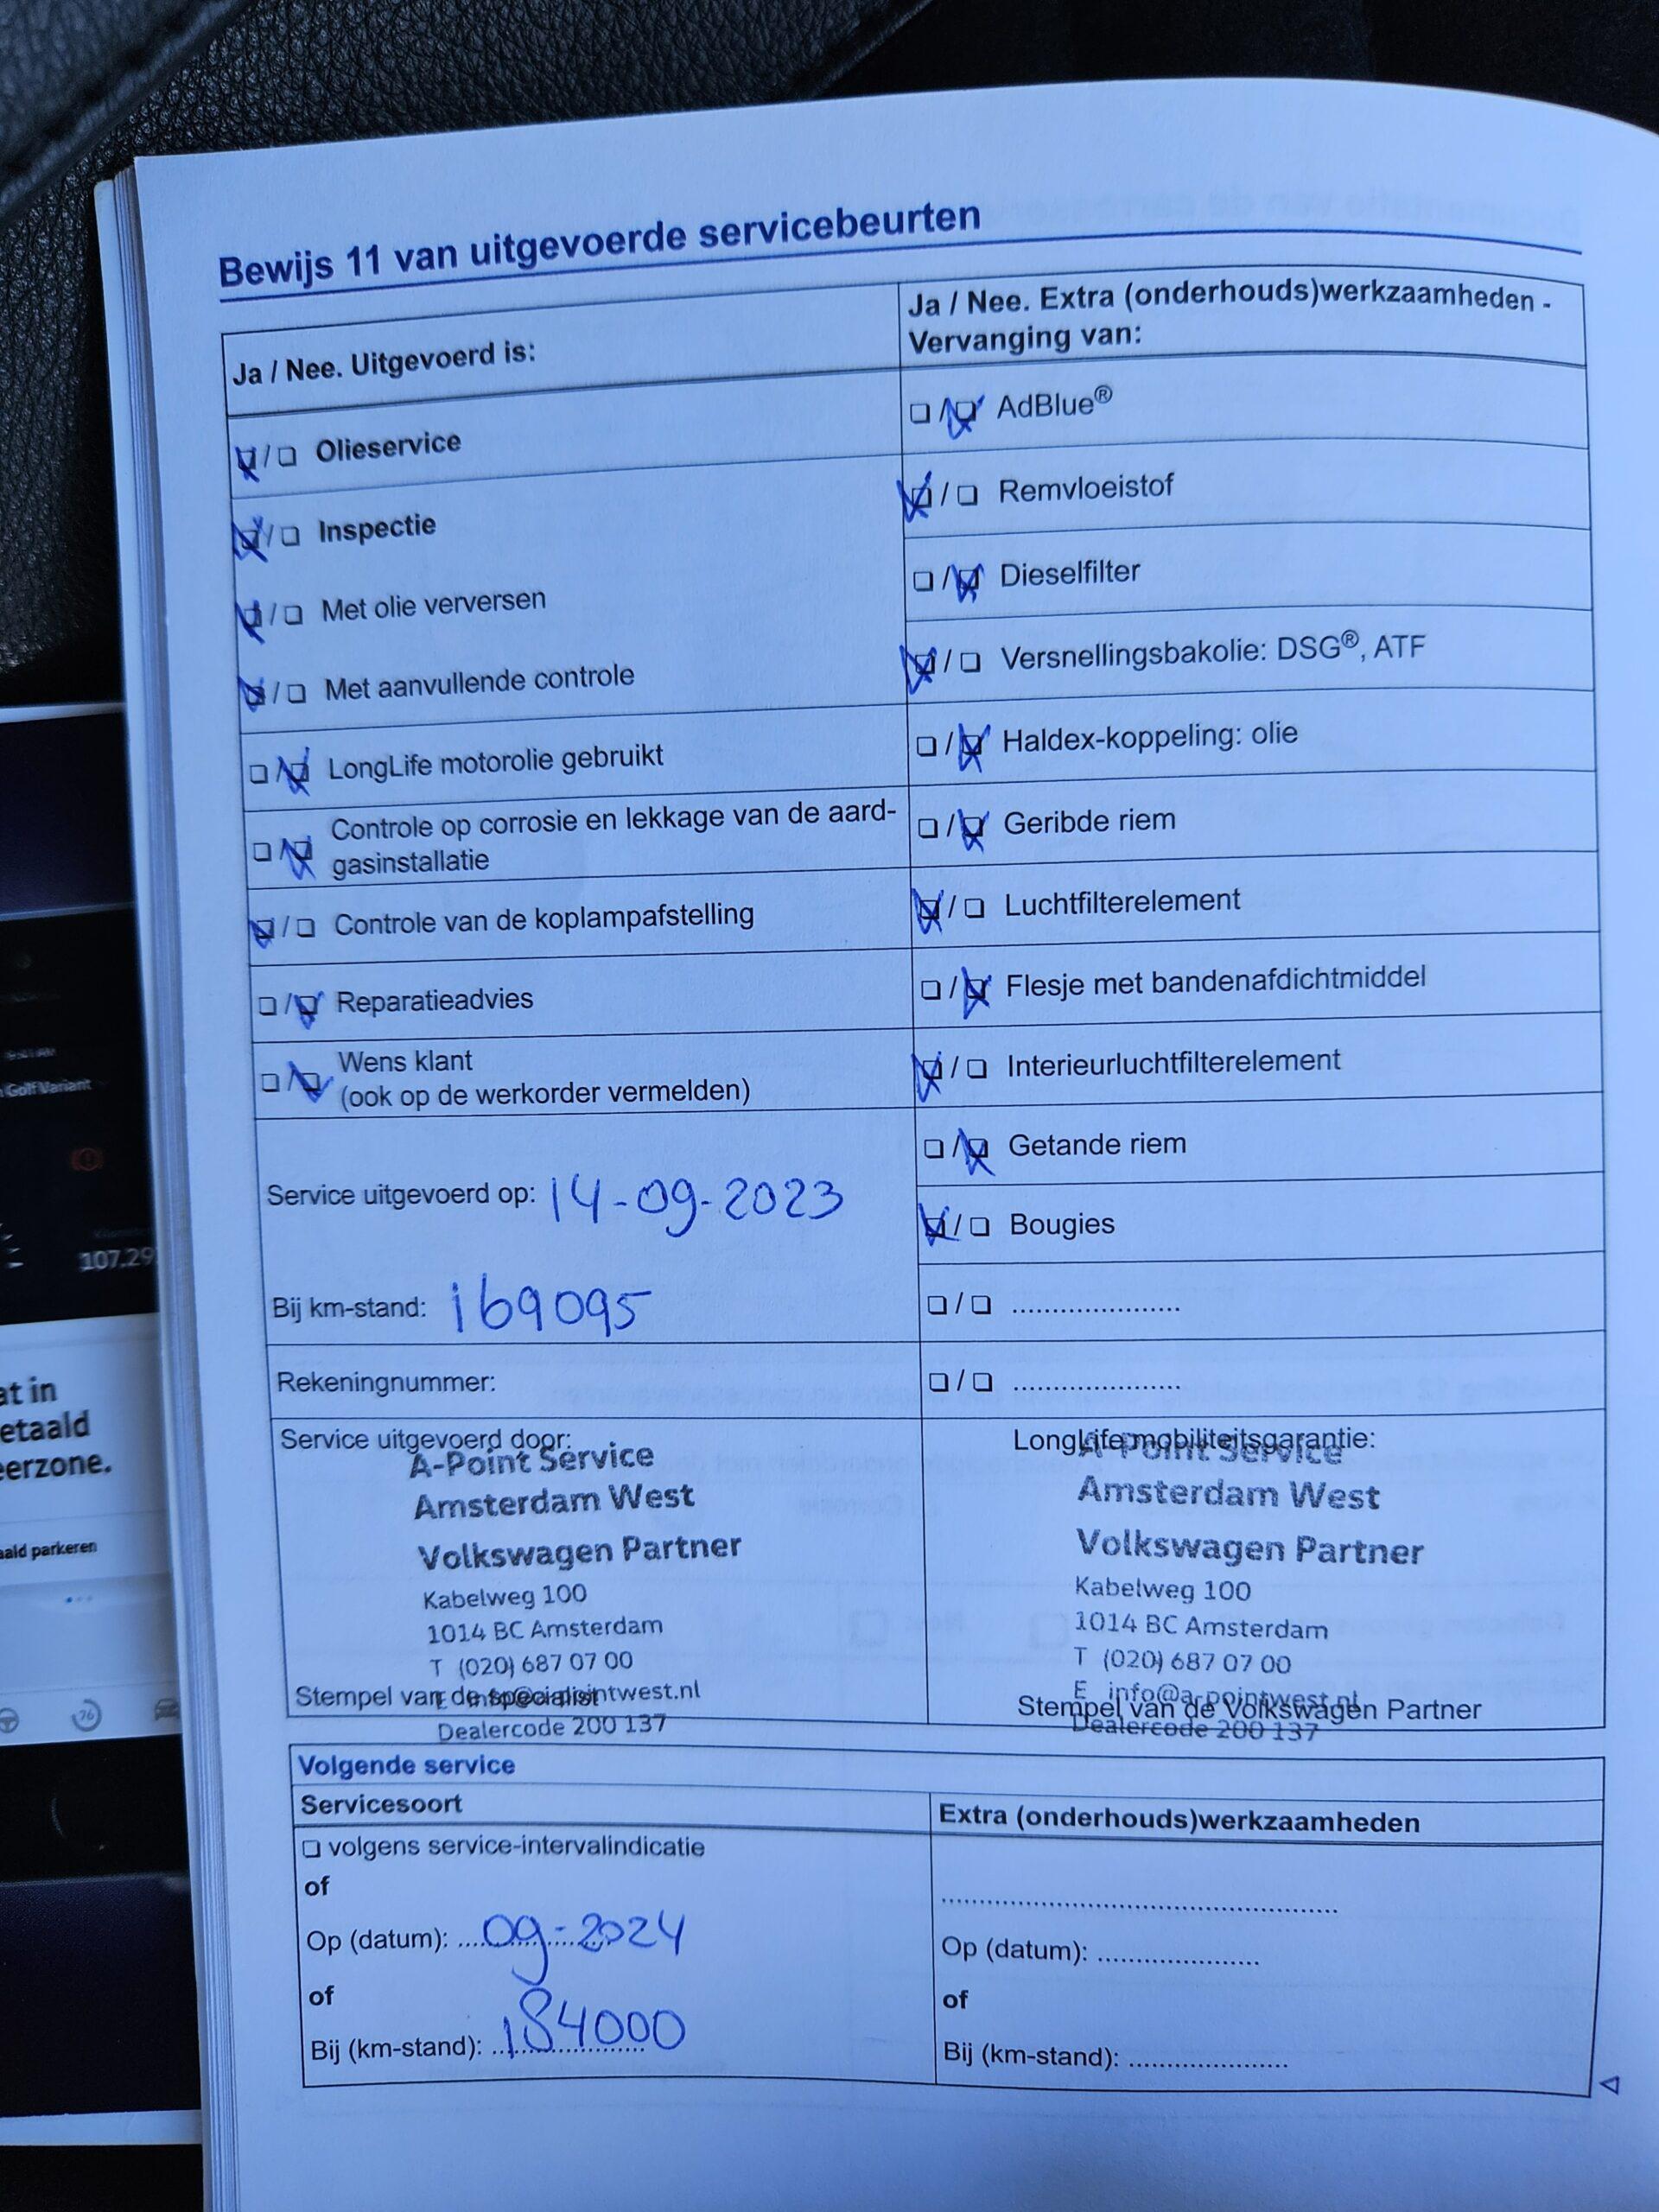 Bewijs 11 van uitgevoerde servicebeurten
Ja / Nee. Uitgevoerd is:
☒/☐ Olieservice
☒/☐ Inspectie
☒/☐ Met olie verversen
☒/☐ Met aanvullende controle
☐/☒ LongLife motorolie gebruikt
☐/☒ Controle op corrosie en lekkage van de aard-
gasinstallatie
☒/☐ Controle van de koplampafstelling
☐/☒ Reparatieadvies
☐/☒ Wens klant
(ook op de werkorder vermelden)
Service uitgevoerd op: 14-09-2023
Bij km-stand: 169095
Rekeningnummer:
Ja / Nee. Extra (onderhouds)werkzaamheden -
Vervanging van:
☐/☒ AdBlue®
☒/☐ Remvloeistof
☐/☒ Dieselfilter
☒/☐ Versnellingsbakolie: DSG®, ATF
☐/☒ Haldex-koppeling: olie
☐/☒ Geribde riem
☒/☐ Luchtfilterelement
☐/☒ Flesje met bandenafdichtmiddel
☒/☐ Interieurluchtfilterelement
☐/☒ Getande riem
☒/☐ Bougies
☐/☐ .....................
☐/☐ .....................
Service uitgevoerd door:
A-Point Service
Amsterdam West
Volkswagen Partner
Kabelweg 100
1014 BC Amsterdam
T (020) 687 07 00
E info@a-pointwest.nl
Stempel van de specialist
Dealercode 200 137
LongLife mobiliteitsgarantie:
A-Point Service
Amsterdam West
Volkswagen Partner
Kabelweg 100
1014 BC Amsterdam
T (020) 687 07 00
E info@a-pointwest.nl
Stempel van de Volkswagen Partner
Dealercode 200 137
Volgende service
Servicesoort
☐ volgens service-intervalindicatie
of
Op (datum): 09-2024
of
Bij (km-stand): 184000
Extra (onderhouds)werkzaamheden
Op (datum): ....................
of
Bij (km-stand): ....................
Golf Variant
107.29
at in
etaald
eerzone.
aald parkeren
76